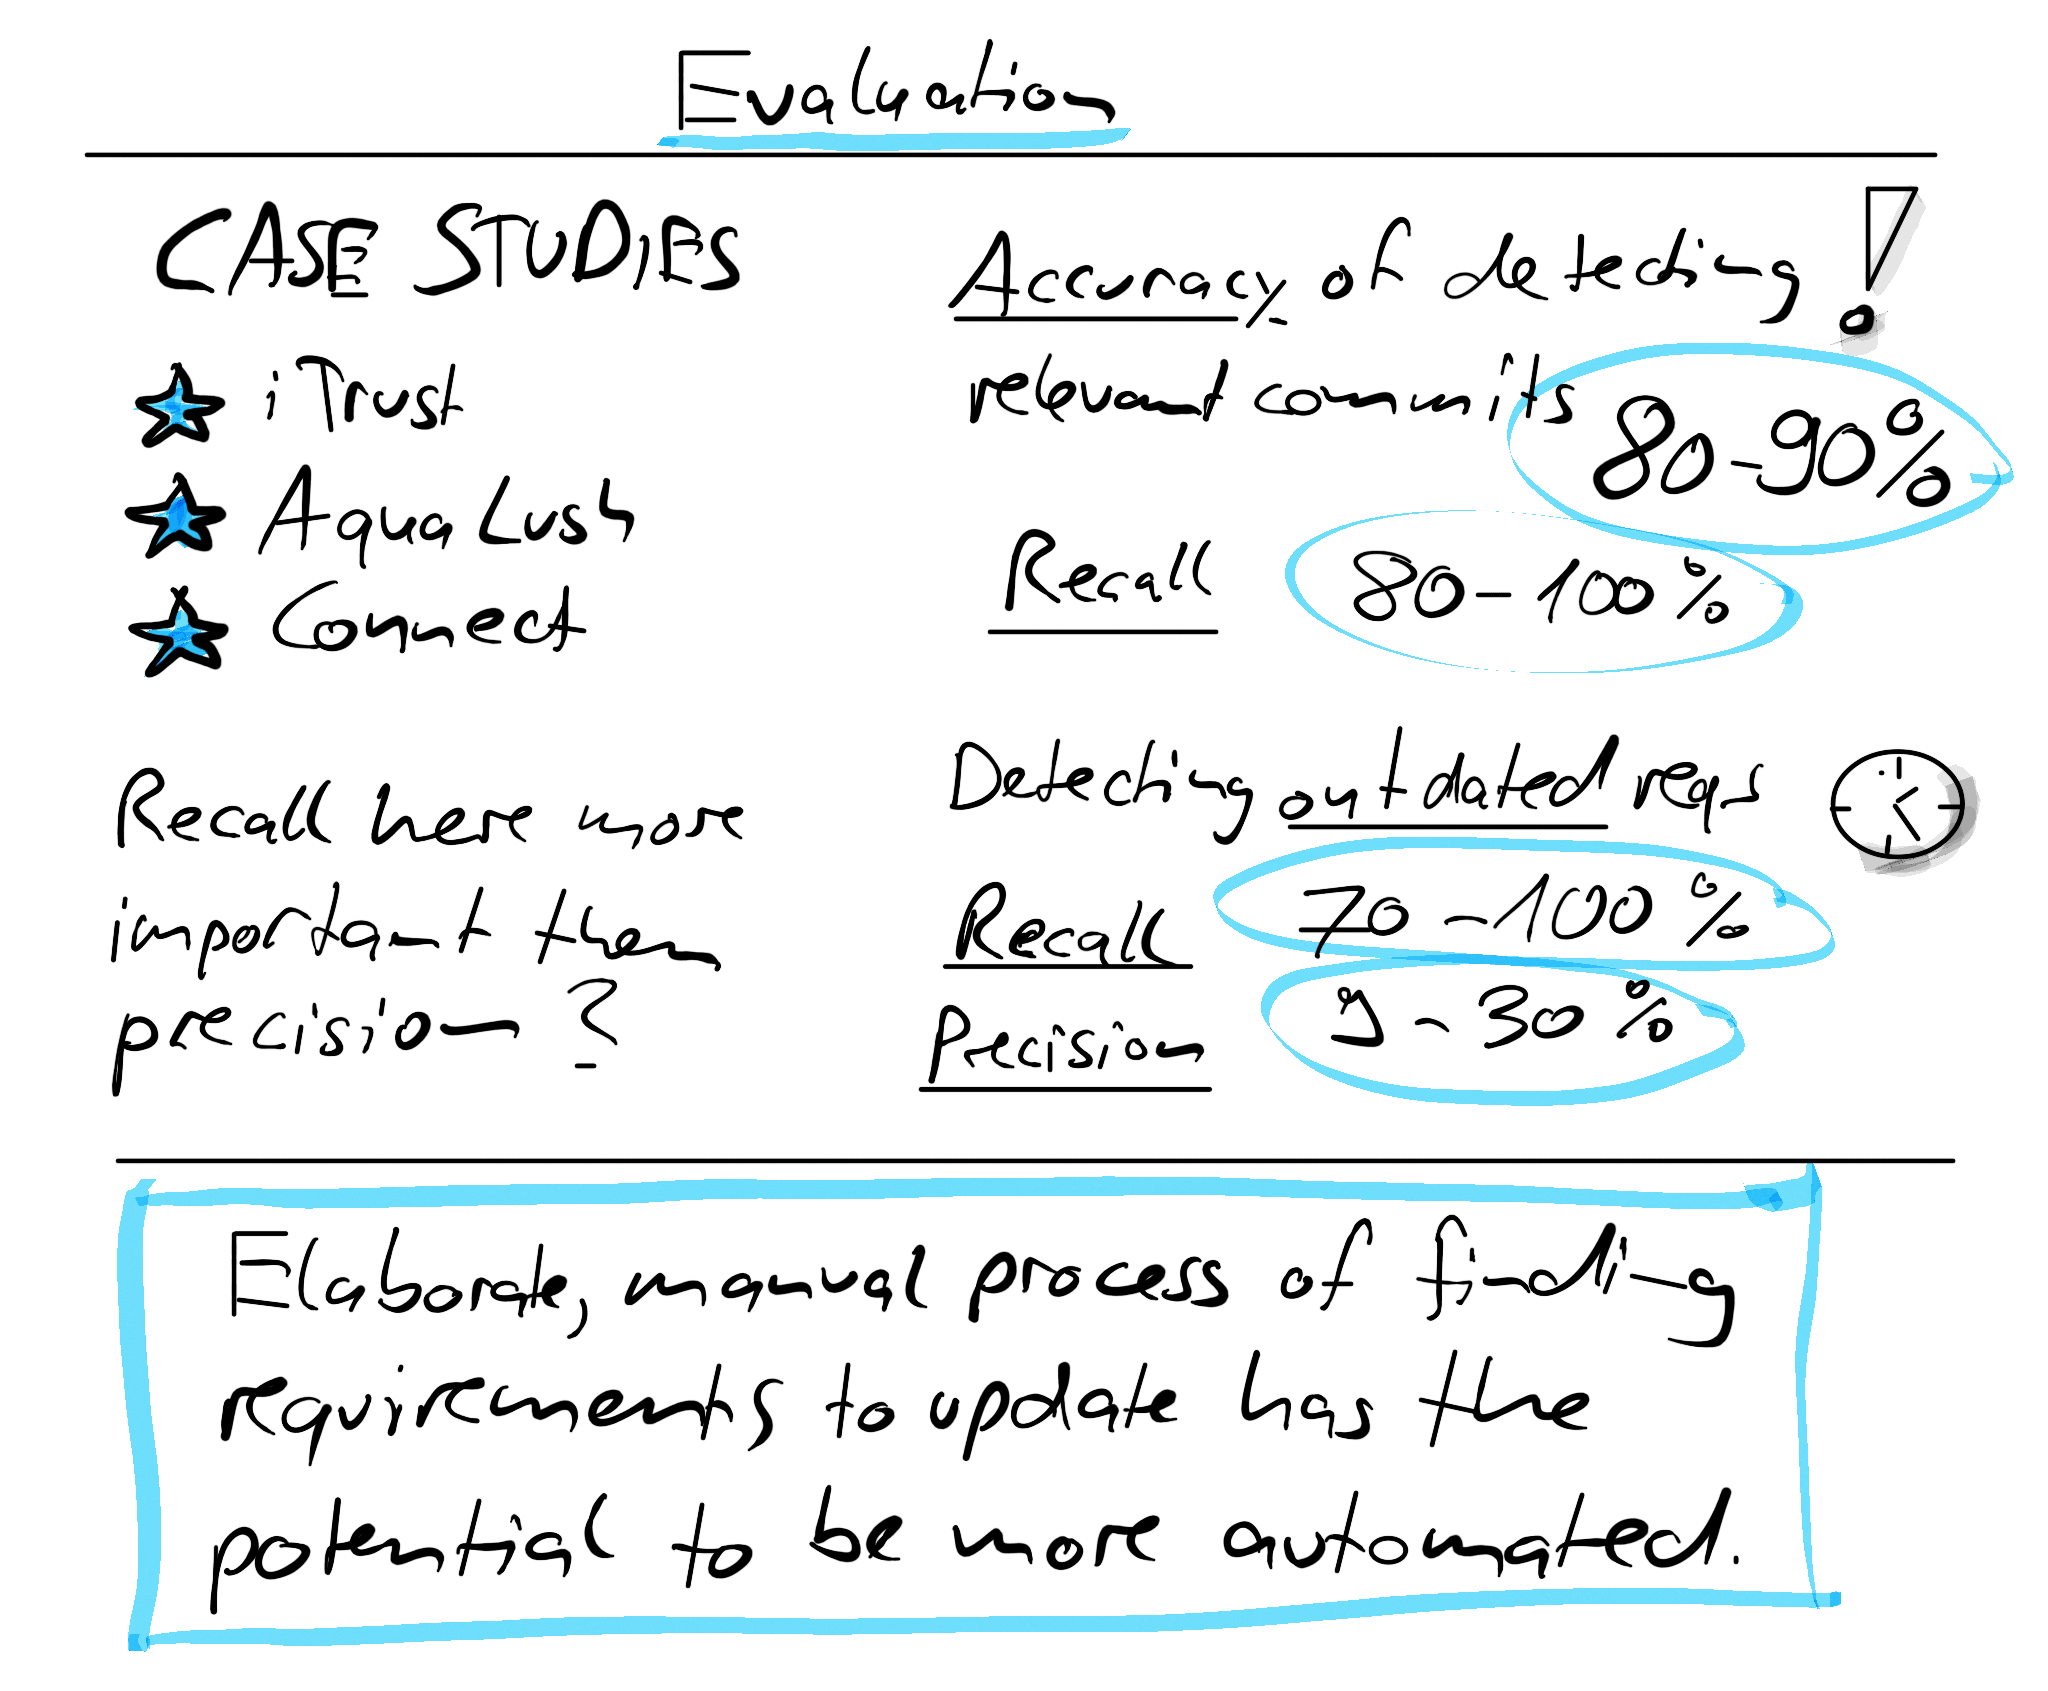 Evaluation
CASE STUDIES
iTrust
AquaLush
Connect
Recall here more
important than
precision?
Accuracy of detecting
relevant commits
80-90%
Recall 80-100%
Detecting outdated reqs
Recall 70-100%
Precision - 30%
Elaborate, manual process of finding
requirements to update has the
potential to be more automated.